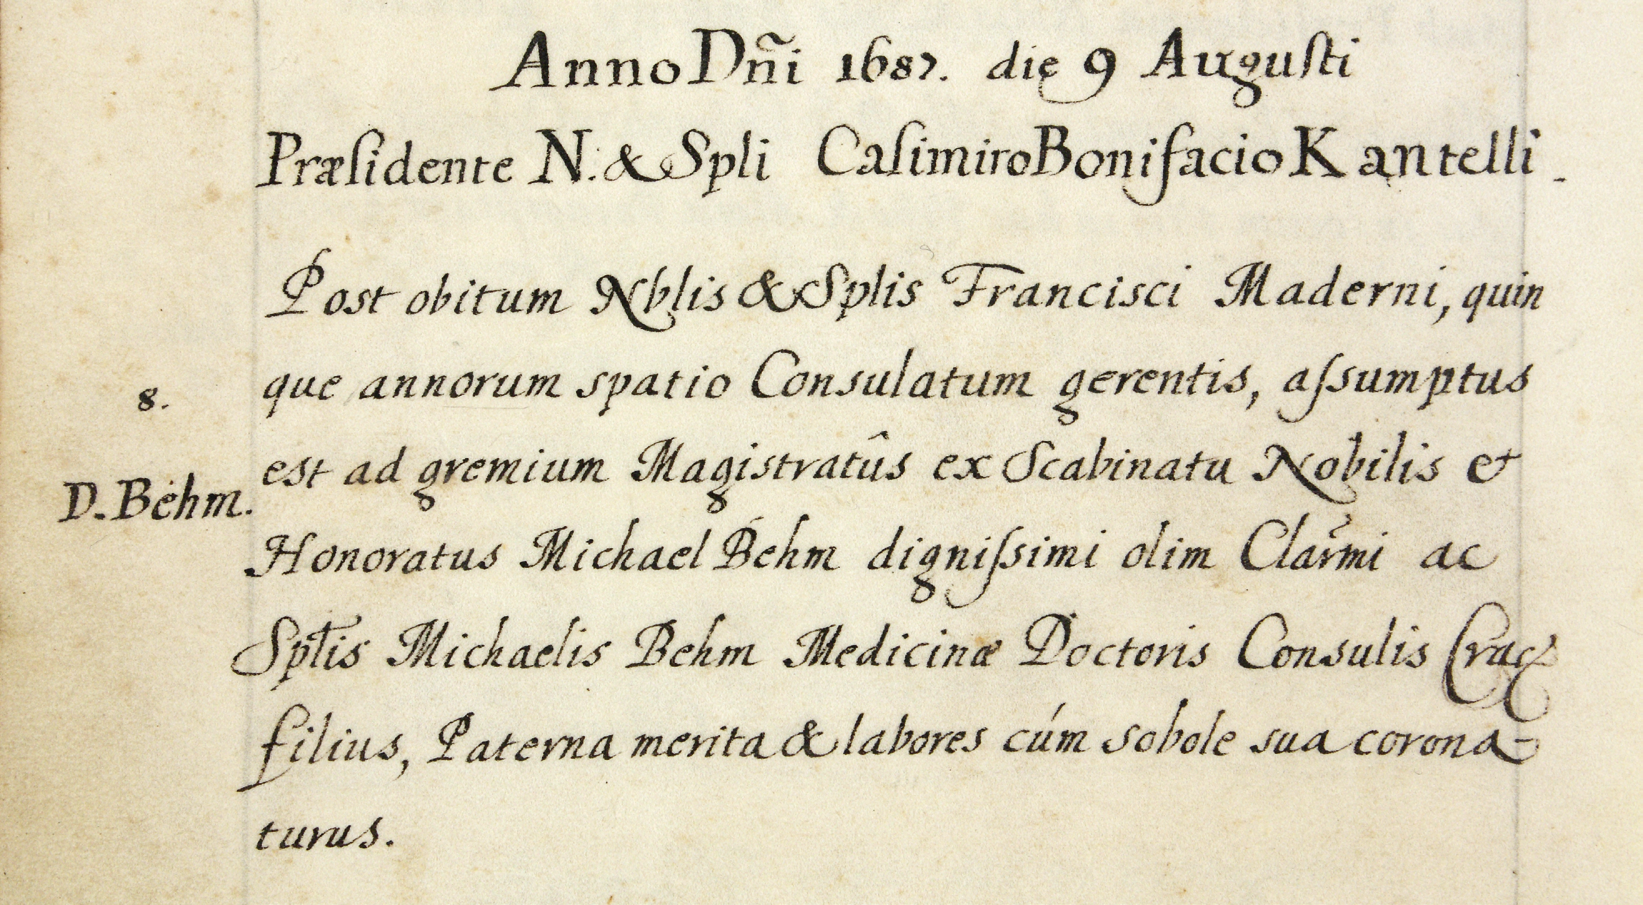 Anno Dñi 1687. die 9 Augusti
Præsidente N. & Spli Casimiro Bonifacio Kantelli.
Post obitum Nblis & Splis Francisci Maderni, quin
que annorum spatio Consulatum gerentis, assumptus
8.
est ad gremium Magistratûs ex Scabinatu Nobilis et
D. Behm.
Honoratus Michael Behm dignissimi olim Clarmi ac
Splis Michaelis Behm Medicinæ Doctoris Consulis Crac
filius, Paterna merita & labores cúm sobole sua corona-
turus.